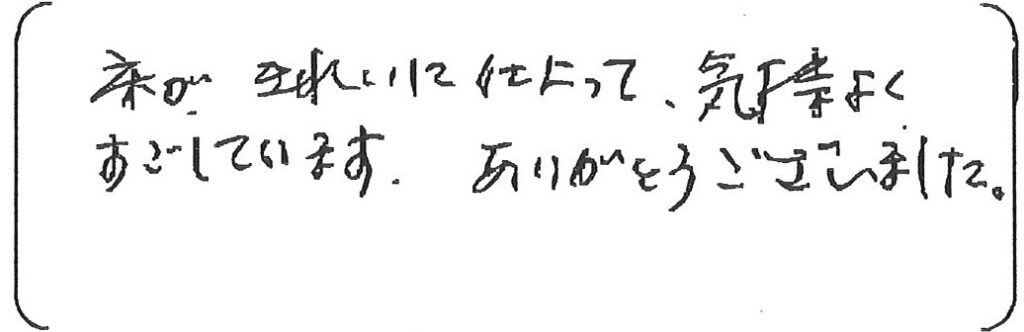 床がきれいに仕上って、気持よく
すごしています. ありがとうございました。